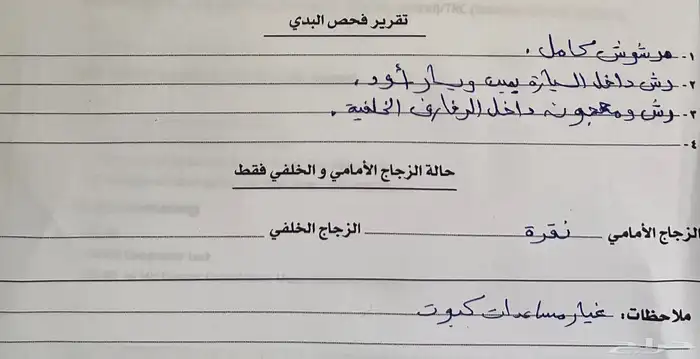 تقرير فحص البدي
١- مرشوش كامل .
٢- رش داخل السيارة يمين ويسار أسود .
٣- رش ومعجونه داخل الرفارف الخلفية .
٤-
حالة الزجاج الأمامي و الخلفي فقط
الزجاج الأمامي نقرة الزجاج الخلفي
ملاحظات: غيار مساعدات كبوت
حراج